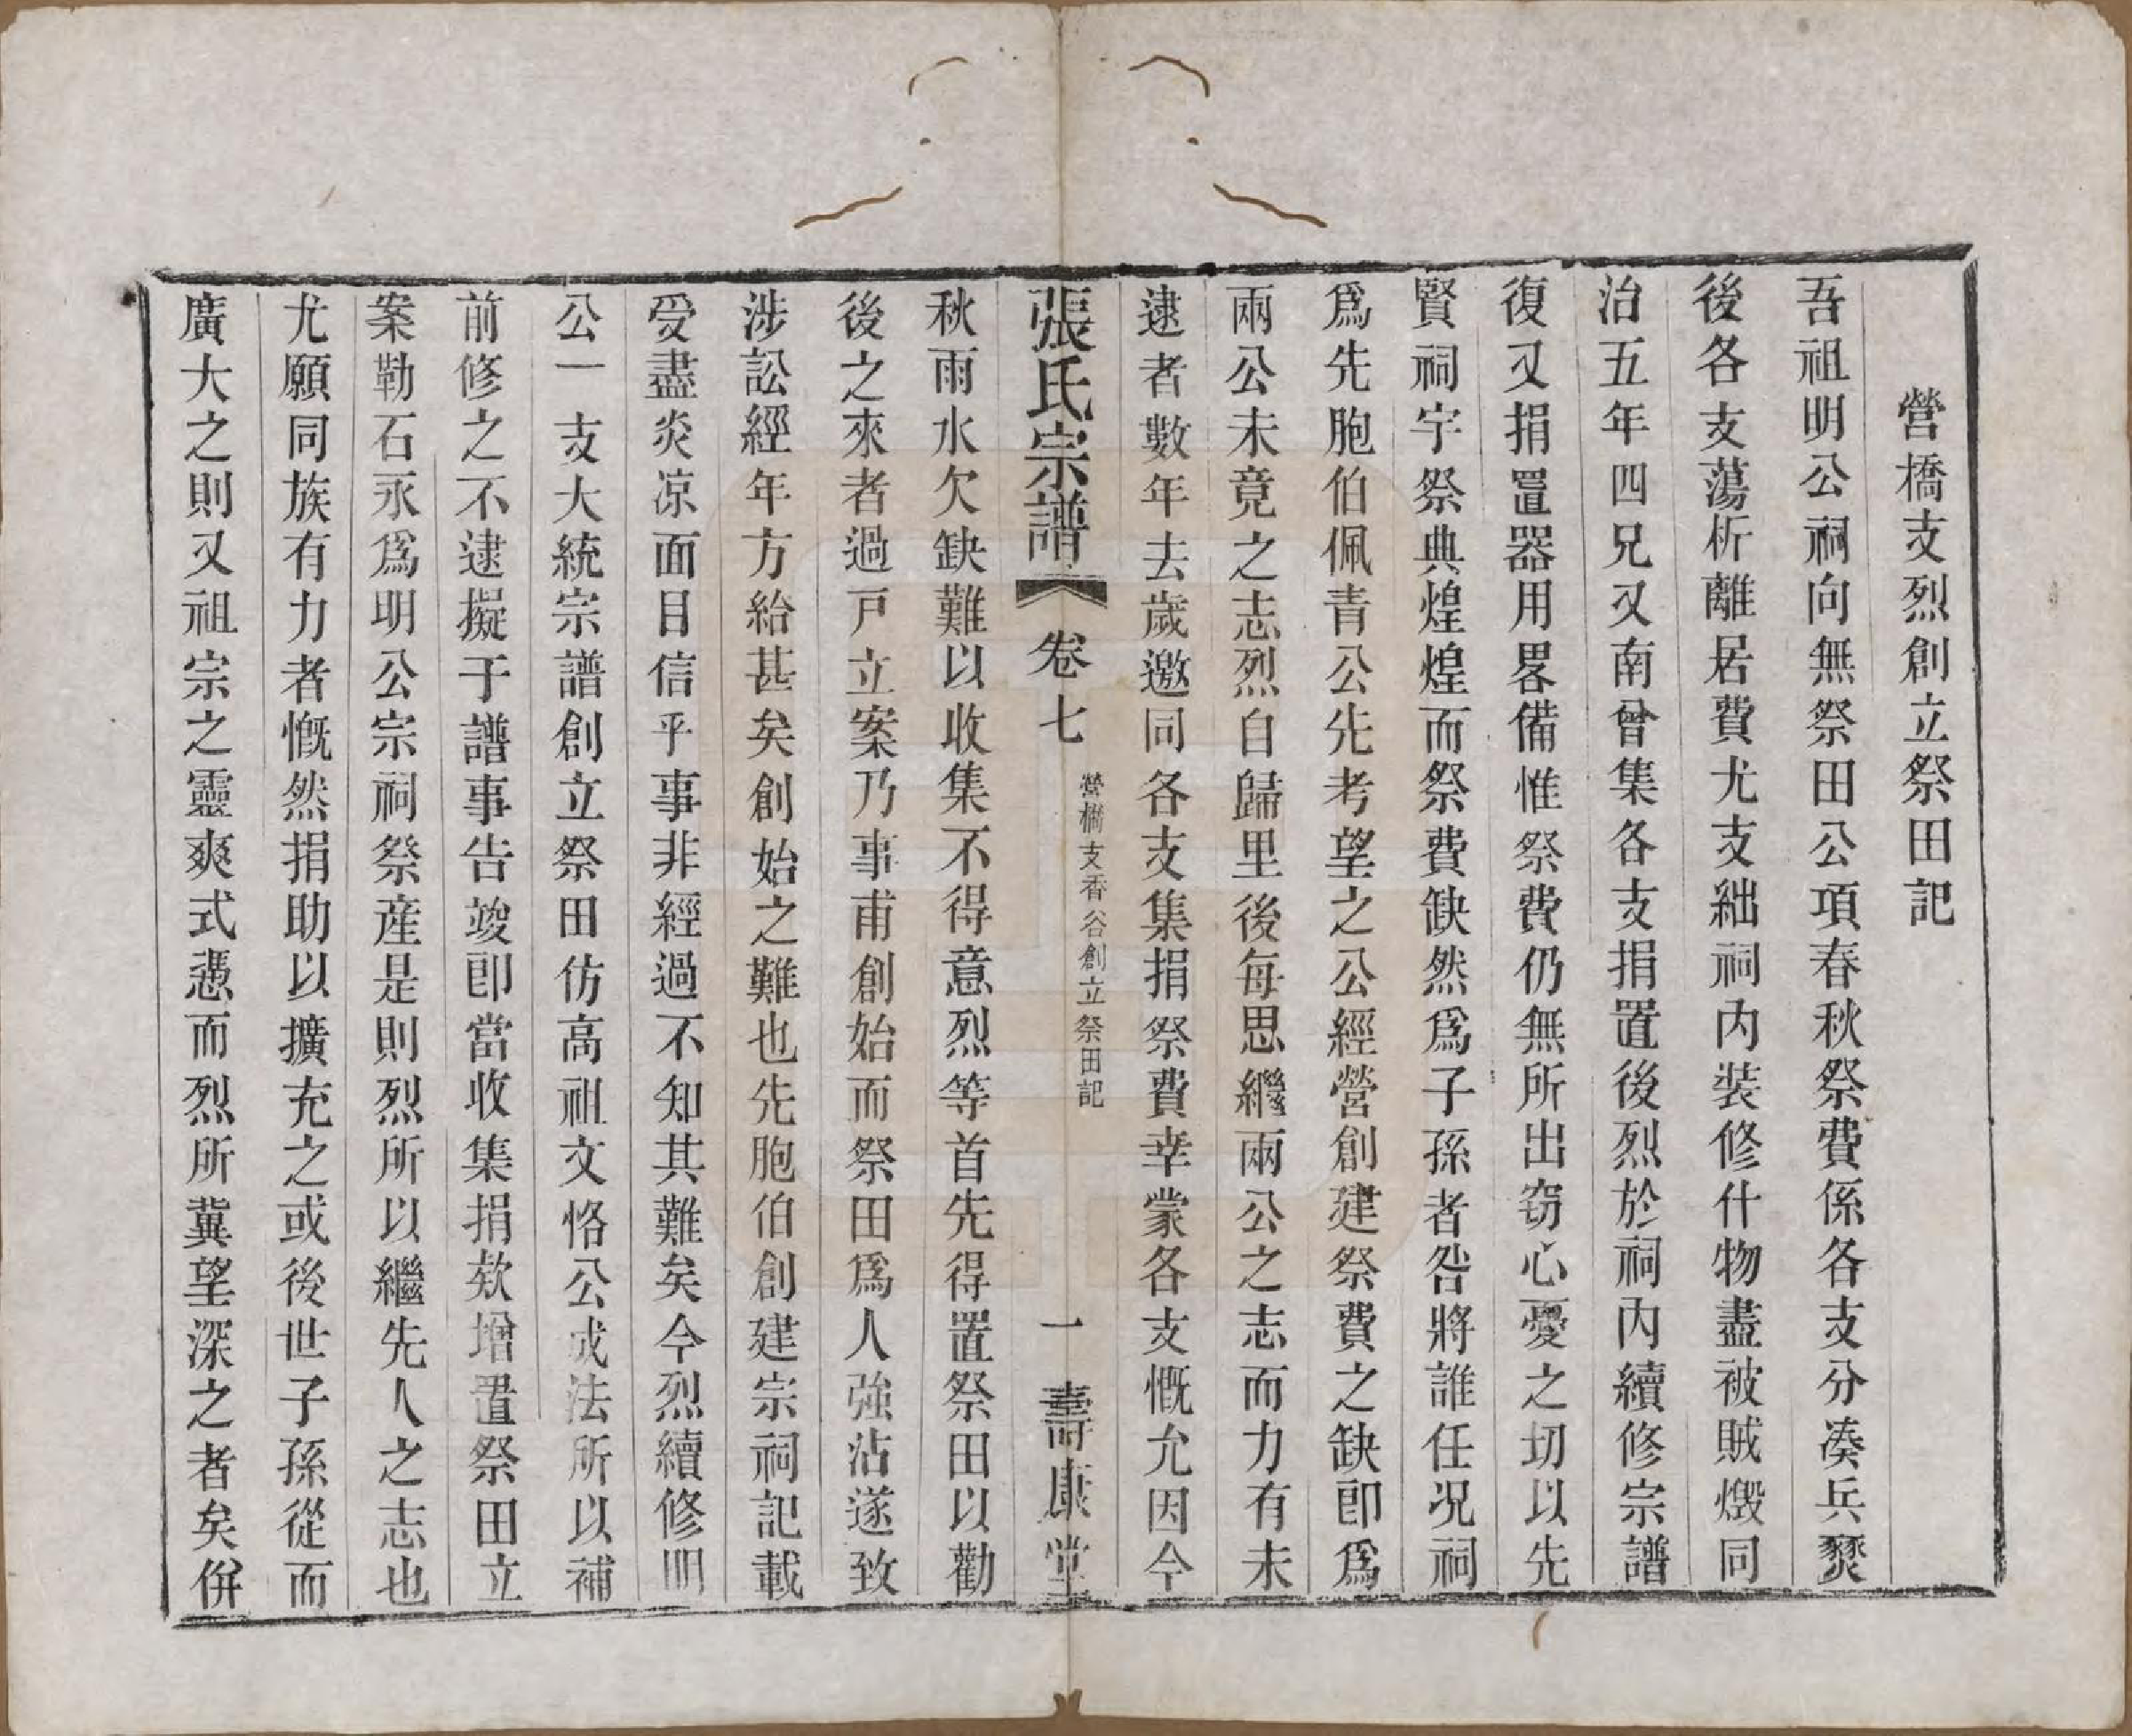 營橋支烈創立祭田記
吾祖明公祠向無祭田公項春秋祭費係各支分凑兵燹
後各支蕩析離居費尤支絀祠内裝修什物盡被賊燬同
治五年四兄又南曾集各支捐置後烈於祠内續修宗譜
復又捐置器用畧備惟祭費仍無所出窃心憂之切以先
賢祠宇祭典煌煌而祭費缺然爲子孫者咎將誰任况祠
爲先胞伯佩青公先考望之公經營創建祭費之缺卽爲
兩公未竟之志烈自歸里後每思繼兩公之志而力有未
逮者數年去歲邀同各支集捐祭費幸蒙各支慨允因今
張氏宗譜 卷七 營橋支香谷創立祭田記 一 壽康堂
秋雨水欠缺難以收集不得意烈等首先得置祭田以勸
後之來者過戸立案乃事甫創始而祭田爲人強沾遂致
涉訟經年方給甚矣創始之難也先胞伯創建宗祠記載
受盡炎凉面目信乎事非經過不知其難矣今烈續修明
公一支大統宗譜創立祭田仿高祖文恪公成法所以補
前修之不逮擬于譜事告竣卽當收集捐欵增置祭田立
案勒石永爲明公宗祠祭産是則烈所以繼先人之志也
尤願同族有力者慨然捐助以擴充之或後世子孫從而
廣大之則又祖宗之靈爽式憑而烈所冀望深之者矣併